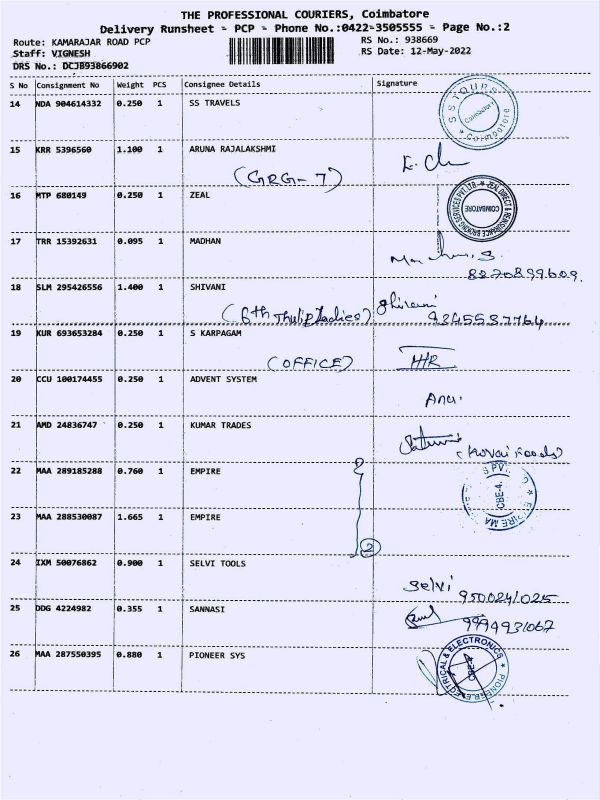 THE PROFESSIONAL COURIERS, Coimbatore
Delivery Runsheet - PCP - Phone No.:0422-3505555 - Page No.:2
Route: KAMARAJAR ROAD PCP RS No.: 938669
Staff: VIGNESH RS Date: 12-May-2022
DRS No.: DCJB93866902
S No Consignment No Weight PCS Consignee Details Signature
14 NDA 904614332 0.250 1 SS TRAVELS
S S TOURS Coimbatore
15 KRR 5396560 1.100 1 ARUNA RAJALAKSHMI
(GRG-7)
16 MTP 680149 0.250 1 ZEAL
COIMBATORE
17 TRR 15392631 0.095 1 MADHAN
8220899609.
18 SLM 295426556 1.400 1 SHIVANI
(6th Thulip Ladies) Shivani 9345537764
19 KUR 693653284 0.250 1 S KARPAGAM
(OFFICE)
20 CCU 100174455 0.250 1 ADVENT SYSTEM
21 AMD 24836747 0.250 1 KUMAR TRADES
(Kovai Foods)
22 MAA 289185288 0.760 1 EMPIRE
CBE-4.
23 MAA 288530087 1.665 1 EMPIRE
2
24 IXM 50076862 0.900 1 SELVI TOOLS
Selvi
9500241025
25 DDG 4224982 0.355 1 SANNASI
9994931067
26 MAA 287550395 0.880 1 PIONEER SYS
CBE-4